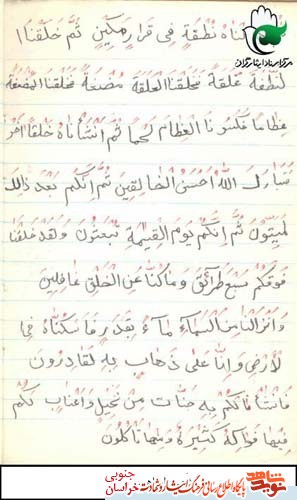 مرکز اسناد ایثارگران
ناهُ نُطْفَةً فِی قَرارٍ مَکینٍ ثُمَّ خَلَقْنا ا
لنُطْفَةَ عَلَقَةً فَخَلَقْنا الْعَلَقَةَ مُضْغَةً فَخَلَقْنا الْمُضْغَةَ
عِظاماً فَکَسَوْنا الْعِظامَ لَحْماً ثُمَّ اَنْشَأناهُ خَلْقاً آخَرَ
فَتَبارَکَ اللهُ اَحْسَنُ الْخالِقینَ ثُمَّ اِنَّکُمْ بَعْدَ ذالِکَ
لَمَیِّتُونَ ثُمَّ اِنَّکُمْ یَوْمَ الْقِیمَةِ تُبْعَثُونَ وَلَقَدْ خَلَقْنا
فَوْقَکُمْ سَبْعَ طَرائِقَ وَما کُنّا عَنِ الْخَلْقِ غافِلینَ
وَاَنْزَلْنا مِنَ السَّماءِ ماءً بِقَدَرٍ فَاَسْکَنّاهُ فِی
لْاَرْضِ وَاِنّا عَلی ذَهابٍ بِهِ لَقادِرُونَ
فَاَنْشَأناکُمْ بِهِ جَنّاتٍ مِنْ نَخیلٍ وَاَعْنابٍ لَکُمْ
فیها فَواکِهُ کَثیرَةٌ وَمِنْها تَأکُلُونَ
نوید شاهد پایگاه اطلاع رسانی فرهنگ ایثار و شهادت خراسان جنوبی